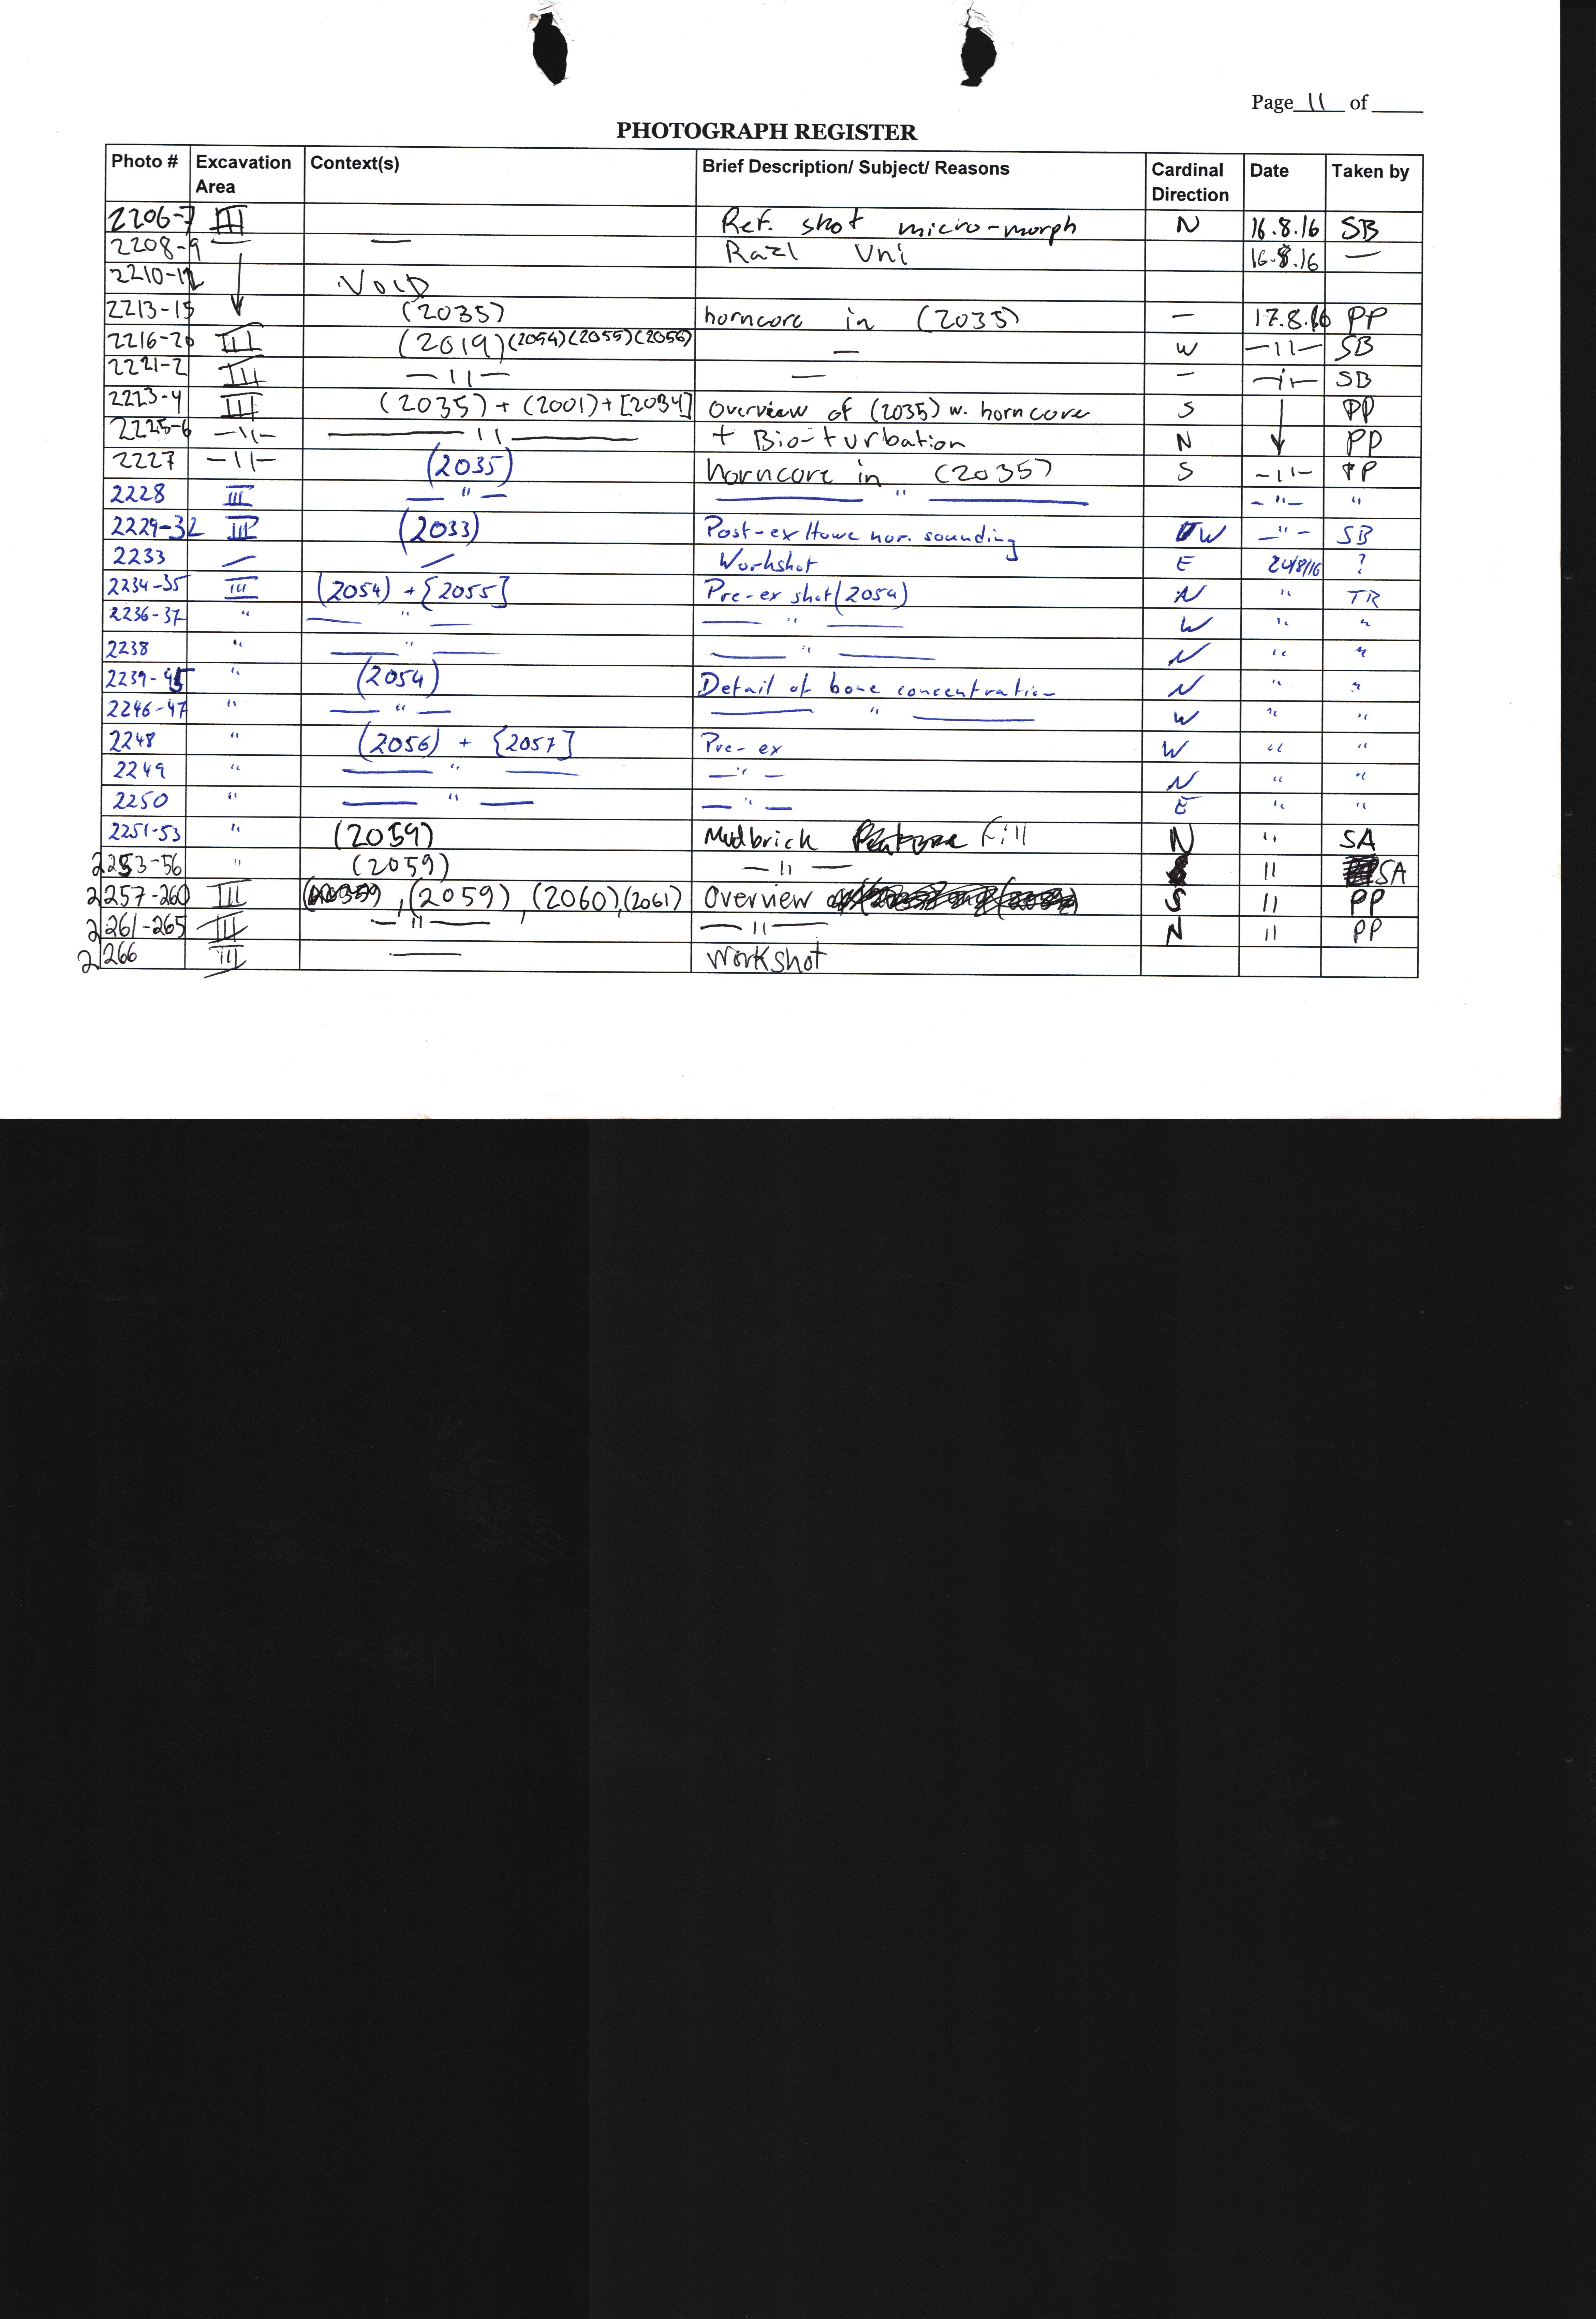 Page 11 of
PHOTOGRAPH REGISTER
Photo # Excavation Area Context(s) Brief Description/ Subject/ Reasons Cardinal Direction Date Taken by
2206-7 III Ref. shot micro-morph N 16.8.16 SB
2208-9 — — Razl Uni 16.8.16 —
2210-12 VOID
2213-15 (2035) horncore in (2035) — 17.8.16 PP
2216-20 III (2019) (2054) (2055) (2056) — W —11— SB
2221-2 III —11— — — —11— SB
2223-4 III (2035) + (2001) + [2034] Overview of (2035) w. horncore S PP
2225-6 —11— —11— + Bio-turbation N PP
2227 —11— (2035) horncore in (2035) S —11— PP
2228 III — " — — " — — " — "
2229-32 III (2033) Post-ex Howe hor. sounding W — " — SB
2233 — — Workshot E 24/8/16 ?
2234-35 III (2054) + {2055] Pre-ex shot (2054) N " TR
2236-37 " — " — — " — W " "
2238 " — " — — " — N " "
2239-45 " (2054) Detail of bone concentration N " "
2246-47 " — " — — " — W " "
2248 " (2056) + {2057] Pre-ex W " "
2249 " — " — — " — N " "
2250 " — " — — " — E " "
2251-53 " (2059) Mudbrick Fill N " SA
2253-56 " (2059) —11— 11 SA
2257-260 III , (2059), (2060), (2061) Overview S 11 PP
2261-265 III —11— —11— N 11 PP
2266 III — Workshot